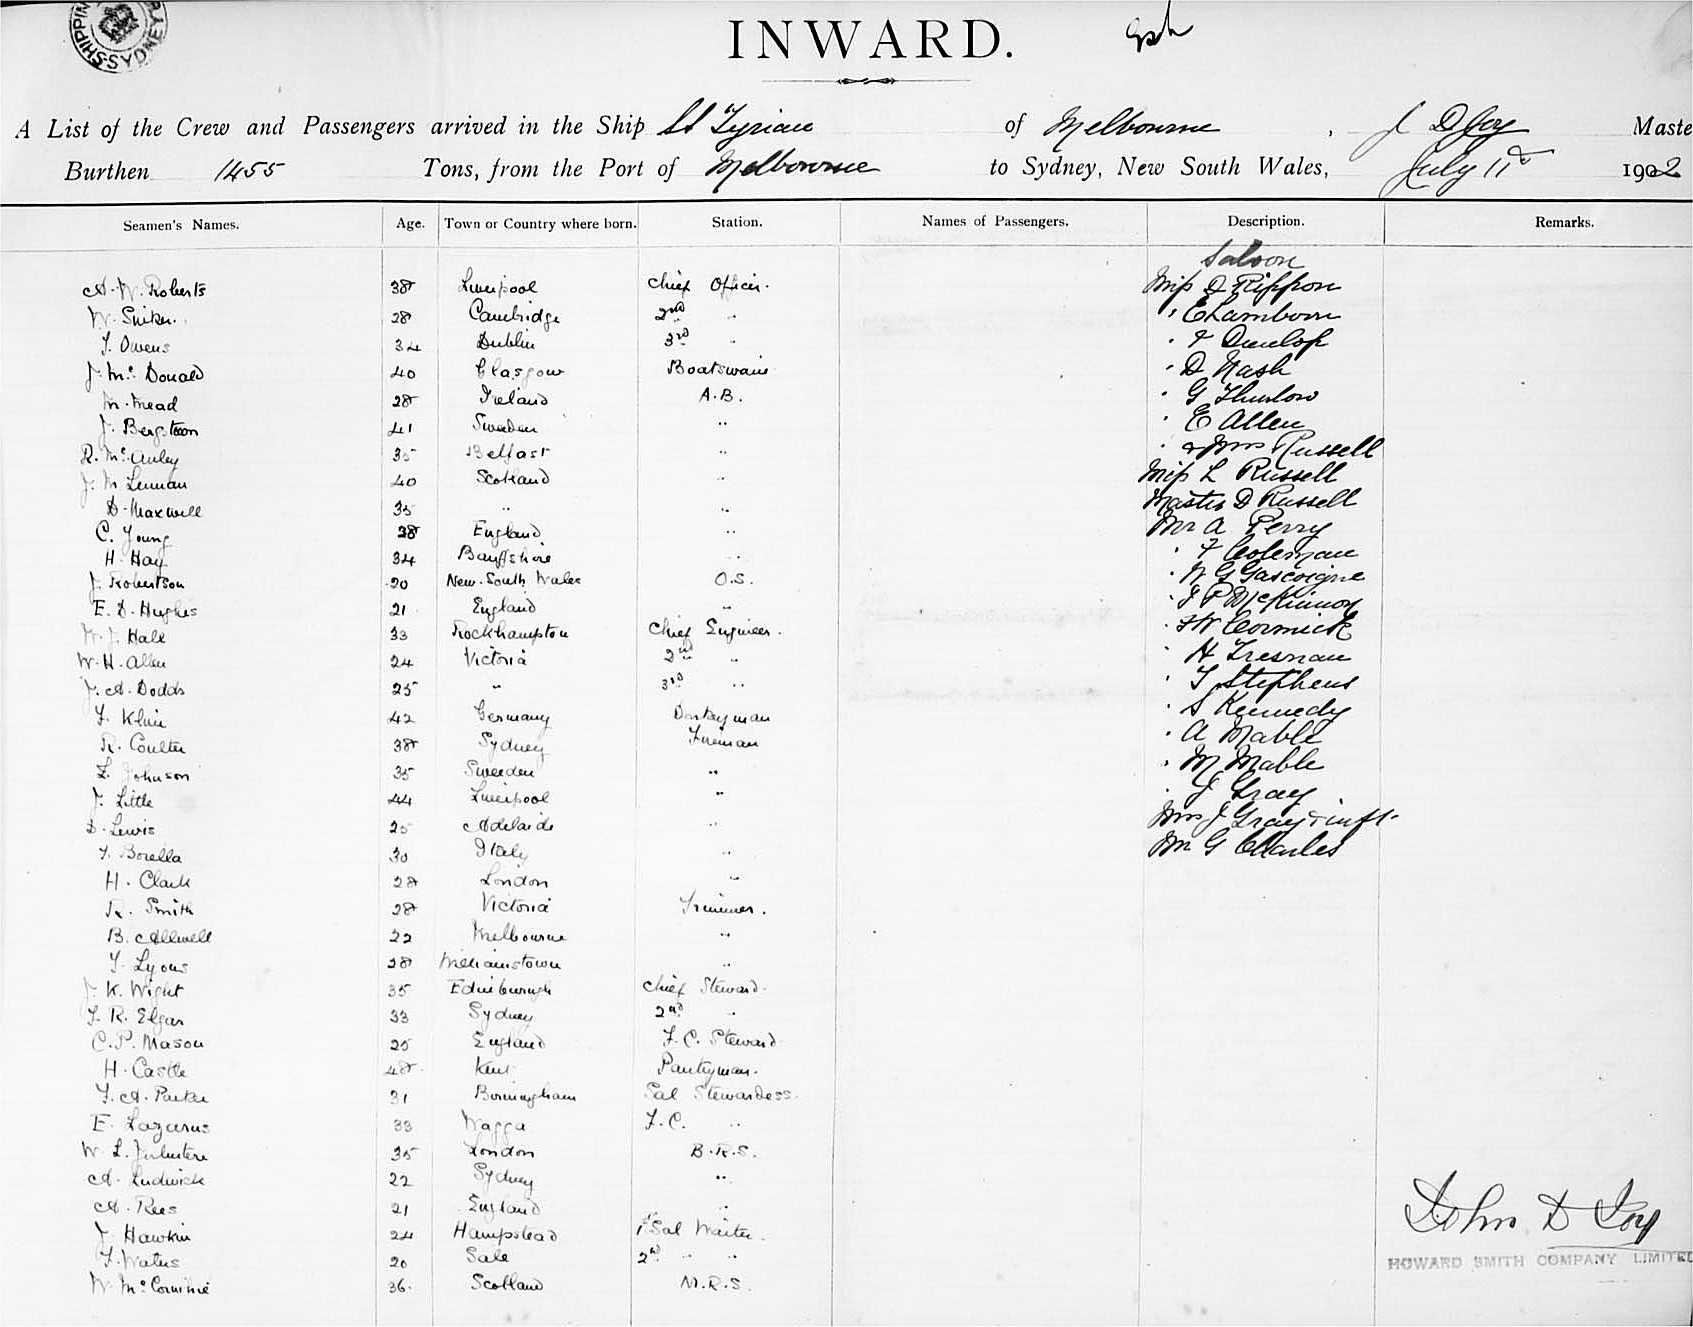 SHIPPIN
SYDNEY
INWARD.
A List of the Crew and Passengers arrived in the Ship SS Tyrian of Melbourne, J D Joy Maste
Burthen 1455 Tons, from the Port of Melbourne to Sydney, New South Wales, July 11th 1902
Seamen's Names. Age. Town or Country where born. Station. Names of Passengers. Description. Remarks.
Saloon
A. W. Roberts 38 Liverpool Chief Officer. Miss D Rippon
W. 28 Cambridge 2nd " " E Lamborn
T. Owens 34 Dublin 3rd " " Dunlop
J. Mc. Donald 40 Glasgow Boatswain " D Nash
M. Mead 28 Ireland A.B. " G Thurlow
J. Bergstrom 41 Sweden " " E Allen
R. Mc. Auley 35 Belfast " " & Mrs Russell
J. M Lennan 40 Scotland " Miss L Russell
D. Maxwell 35 " " Master D Russell
C. Young 38 England " Mr A Perry
H. Hay 34 Banffshire " " F Coleman
J. Robertson 20 New South Wales O.S. " W G Gascoigne
E. D. Hughes 21 England " " J P McKinnon
W. J. Hall 33 Rockhampton Chief Engineer. " W Cormick
W. H. Allen 24 Victoria 2nd " " H
J. A. Dodds 25 " 3rd " " T Stephens
F. Klein 42 Germany Donkeyman " S Kennedy
R. Coulter 38 Sydney Fireman " A Mable
L. Johnson 35 Sweden " " M Mable
J. Little 44 Liverpool " " J Gray
D. Lewis 25 Adelaide " Mrs J Gray & inft.
F. Borella 30 Italy " Mr G Charles
H. Clark 28 London "
R. Smith 28 Victoria Trimmer.
B. Allwell 22 Melbourne "
T. Lyons 28 Williamstown "
J. K. Wight 35 Edinburgh Chief Steward.
F. R. Elgar 33 Sydney 2nd "
C. P. Mason 25 England F. C. Steward
H. Castle 48 Kent Pantryman.
F. A. Parker 31 Birmingham Sal Stewardess.
E. Lazarus 33 Wagga F. C. "
W. L. 35 London B.R.S.
A. Ludwick 22 Sydney "
A. Rees 21 England "
J. Hawkin 24 Hampstead 1st Sal Waiter.
F. Waters 20 Sale 2nd " "
W. Mc. 36 Scotland M.R.S.
John D Joy
HOWARD SMITH COMPANY LIMITED